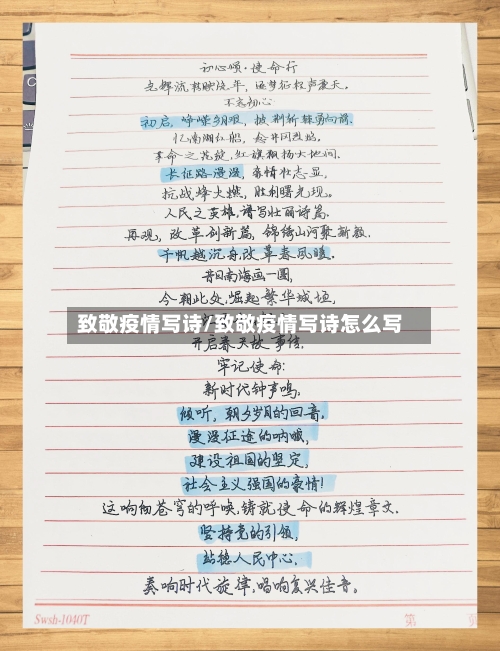 初心颂·使命行
光辉流转映流年，逐梦征程声震天。
不忘初心
初启，峥嵘朝暾，披荆斩棘勇向前。
忆南湖红船，忩井冈烈焰。
革命之花绽，红旗飘扬大地间。
长征路漫漫，豪情壮志显，
抗战烽火燃，胜利曙光现。
人民之英雄，谱写壮丽诗篇。
再观，改革创新篇，锦绣山河聚新毅.
千帆越沉舟，改革春风暖.
昔日南海画一圈，
今朝此处，崛起繁华城垣，
致敬疫情写诗/致敬疫情写诗怎么写
开启春天故事传.
牢记使命:
新时代钟声鸣.
倾听，朝夕岁月的回音，
漫漫征途的呐喊，
建设祖国的坚定，
社会主义强国的豪情!
这响彻苍穹的呼唤，铸就使命的辉煌章文.
坚持党的引领，
站稳人民中心，
奏响时代旋律，唱响复兴佳音。
Swsh-1040T
第 页